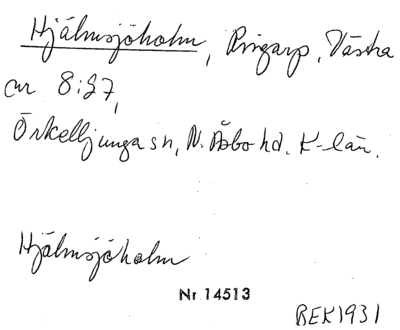 Hjälmsjöholm, Ringarp, Västra
nr 8:27,
Örkelljunga sn, N. Åsbo hd. K-län.
Hjälmsjöholm
Nr 14513
BEK1931